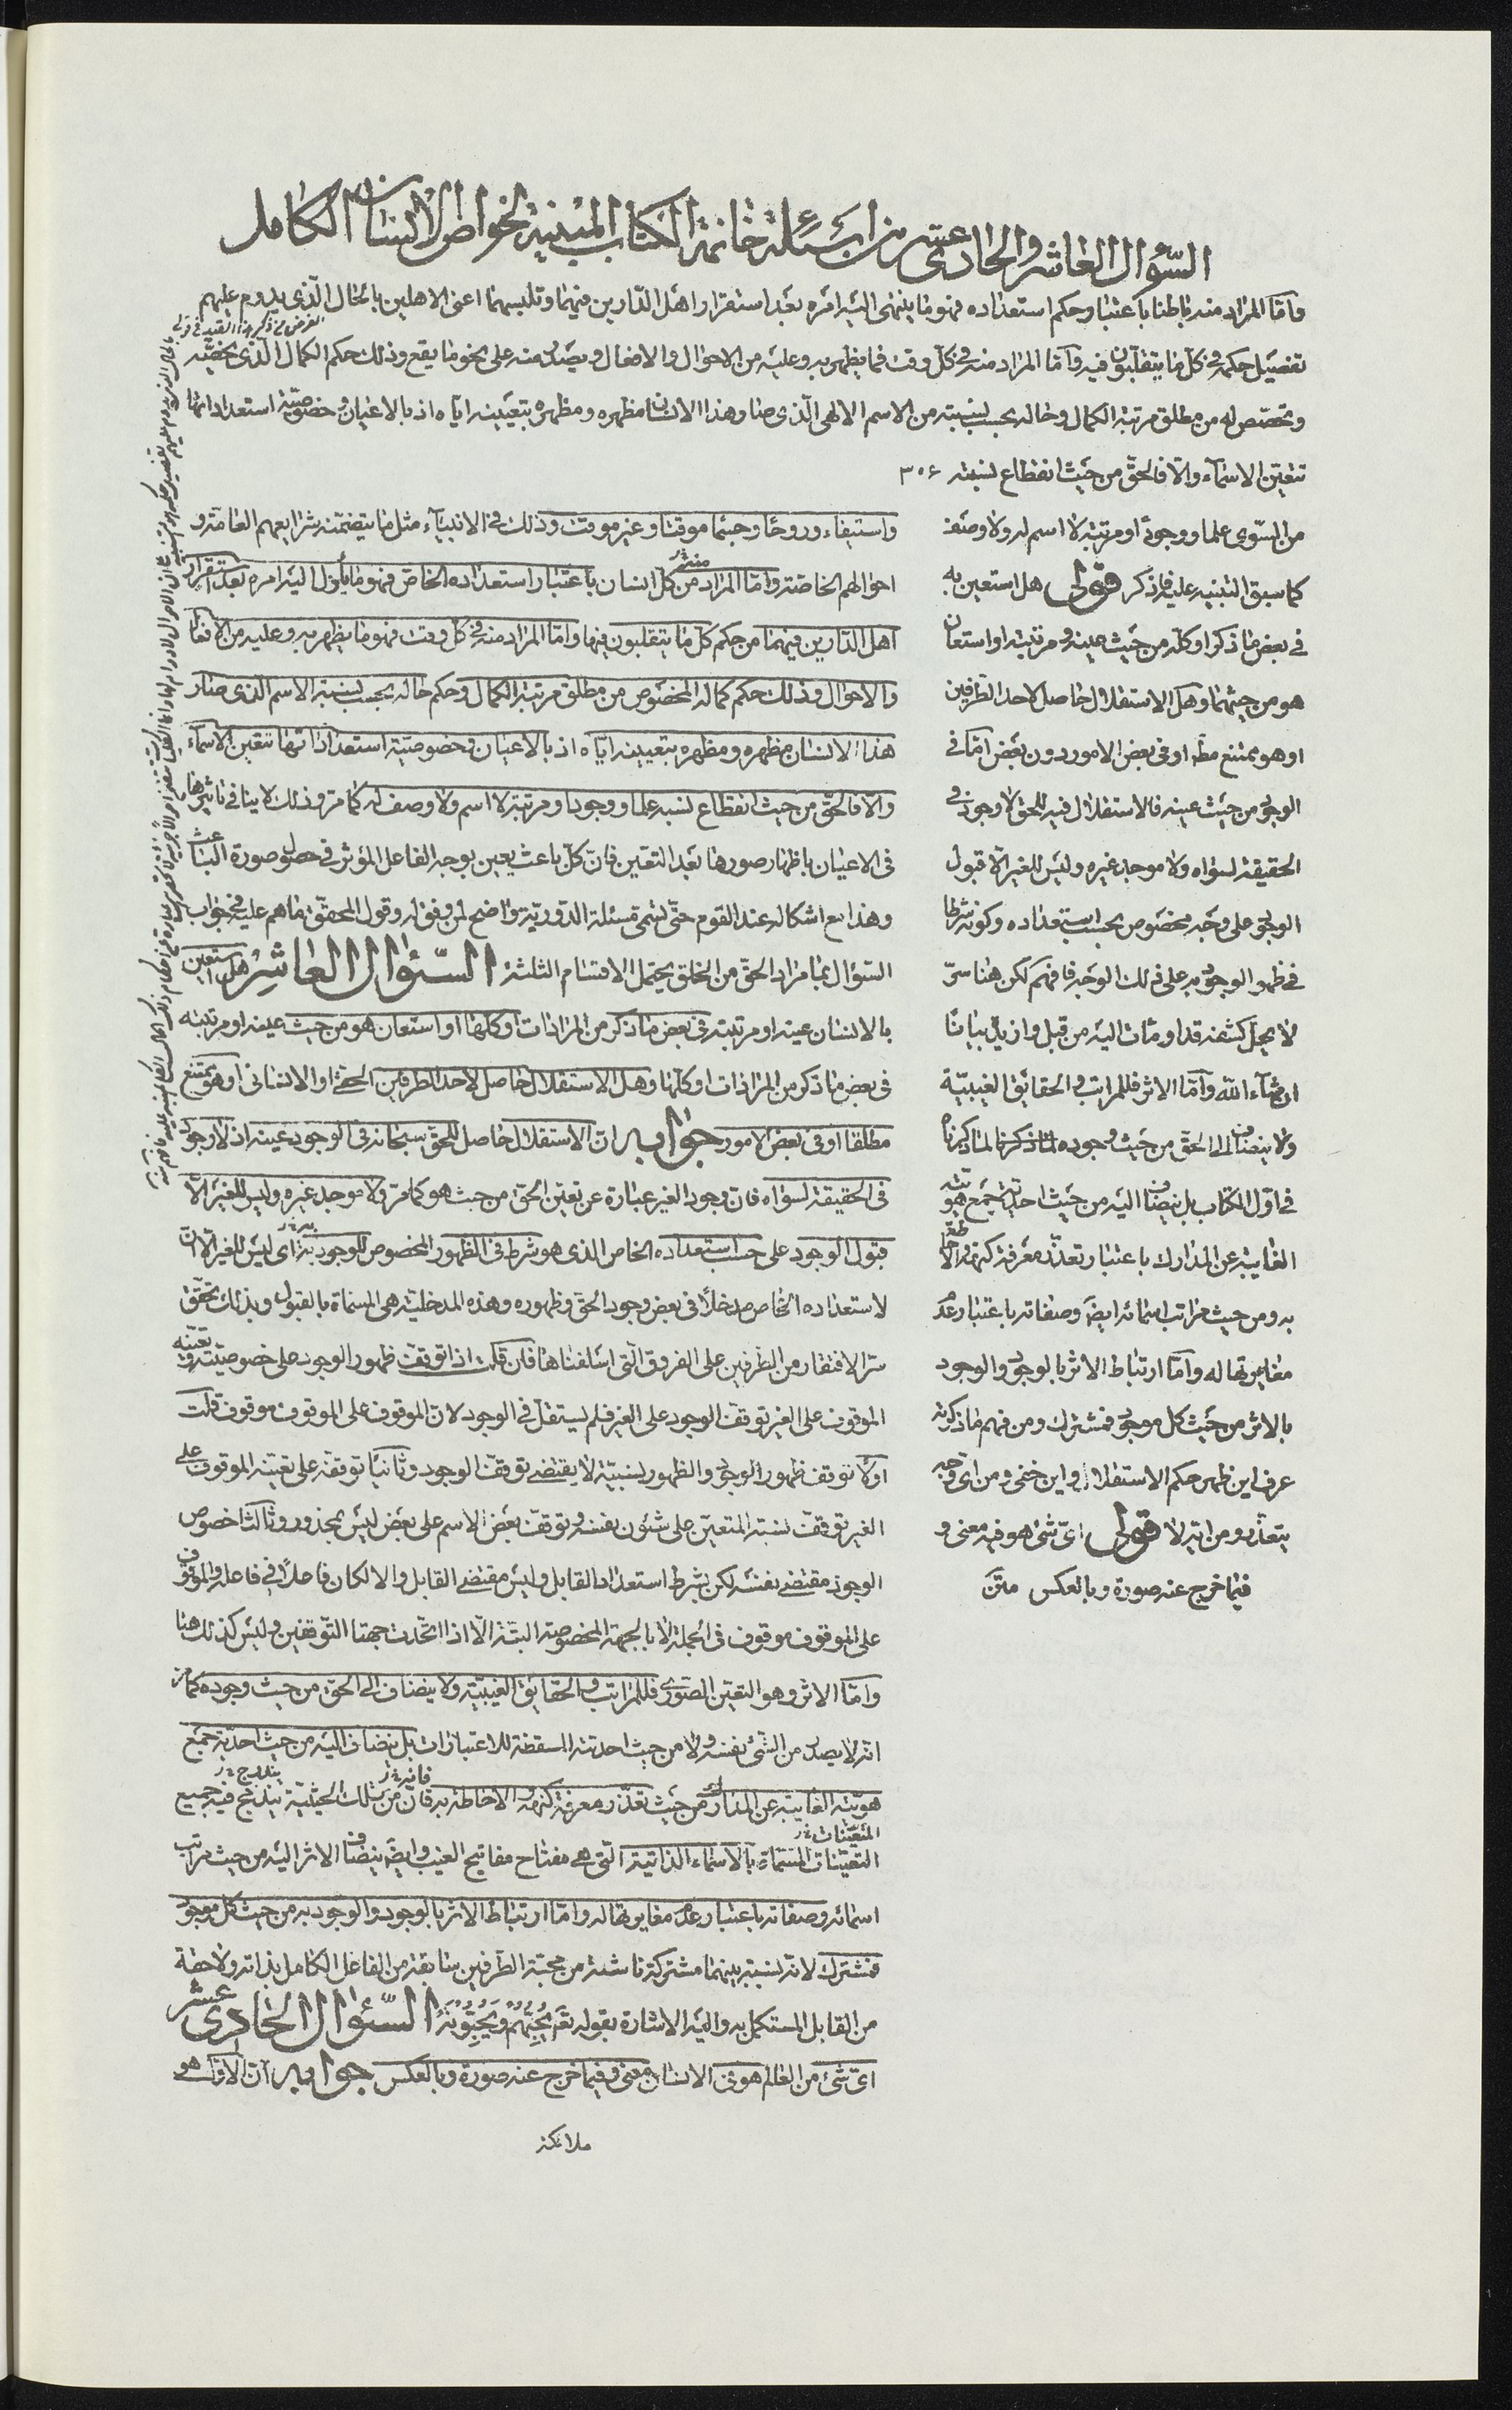 السّؤال العاشر والحادى عشر من اسئلة خاتمة الكتاب المبينة لخواص الانسان الكامل
وامّا المراد منه باطنا باعتبار حكم استعداده فهو ما ينتهى اليه امره بعد استقرار اهل الدّارين فيهما وتلبسهما اعنى الاهلين بالحال الّذى يدوم عليهم
تفصيل حكمه فى كلّ ما يتقلّبون فيه وامّا المراد منه فى كلّ وقت فما يظهر به وعليه من الاحوال والافعال ويصدر منه على نحو ما يقع وذلك حكم الكمال الّذى يخصّه
وتخصّص له من مطلق مرتبة الكمال وحاله بحسب نسبته من الاسم الالهى الّذى صار هذا الانسان مظهره ومظهره بتعيينه ايّاه اذ بالاعيان وخصوصيّة استعداداتها
تتعيّن الاسماء والّا فالحقّ من حيث انقطاع نسبته ٣٠٦
من السّوى علما ووجودا ومرتبة لا اسم له ولا وصف
كما سبق التنبيه عليه فاذكر قولى هل استعين به
فى بعض ما ذكر او كلّه من حيث عينه ومرتبته او استعان
هو من حيثهما وهل الاستقلال حاصل لاحد الطّرفين
او هو ممتنع مطّ او فى بعض الامور دون بعض امّا فى
الوجود من حيث عينه فالاستقلال فيه للحقّ لا وجود فى
الحقيقة لسواه ولا موجد غيره وليس للغير الّا قبول
الوجود على وجه مخصوص بحسب استعداده وكونه شرطا
فى ظهور الوجود به على ذلك الوجه فافهم لكن هنا سرّ
لا يحلّ كشفه قد اومأت اليه من قبل وازيد بيانا
ان شاء الله وامّا الاثر فللمراتب والحقائق الغيبيّة
ولا ينضاف الى الحقّ من حيث وجوده لما ذكرنا لما ذكرناه
فى اوّل الكتاب بل ينضاف اليه من حيث احديّة جمع هويّته
الغايبة عن المدارك باعتبار تعذّر معرفة كنهه والاحاطة
به ومن حيث مراتب اسمائه ايضا وصفاته باعتبار عدم
مغايرتها له وامّا ارتباط الاثر بالوجود والوجود
بالاثر من حيث كل موجود فمشترك ومن فهم ما ذكرته
عرف اين ظهر حكم الاستقلال واين خفى ومن اى وجه
يتعذّر ومن ايّه لا قولى اىّ شئ هو فيه معنى و
فيما خرج عنه صورة وبالعكس متن
واستيفاء وروحا وجسما موقتا وغير موقت وذلك فى الانبياء مثل ما يتضمّنه شرايعهم العامّة و
احوالهم الخاصّة وامّا المراد من كلّ انسان باعتبار استعداده الخاص فهو ما يأول اليه امره بعد استقرار
اهل الدّارين فيهما من حكم كلّ ما يتقلبون فيها وامّا المراد منه فى كلّ وقت فهو ما يظهر به وعليه من الافعال
والاحوال وذلك حكم كماله المخصوص من مطلق مرتبة الكمال وحكم حاله بحسب نسبة الاسم الذى صار
هذا الانسان مظهره ومظهره بتعيينه ايّاه اذ بالاعيان وخصوصيّة استعداداتها تتعيّن الاسماء
والّا فالحقّ من حيث انقطاع نسبه علما ووجودا ومرتبة لا اسم ولا وصف له كما مرّ وذلك لا ينافى تاثيرها
فى الاعيان باظهار صورها بعد التعيّن فانّ كلّ باعث يعين بوجه الفاعل المؤثر فى حصول صورة الباعث
وهذا مع اشكاله عند القوم حتّى تسمّى مسئلة الدّوريّة واضح لمن وفق له وقول المحقّق ما هم عليه فى جواب
السّؤال بما مراد الحقّ من الخلق يحتمل الاقسام الثلثة السّئوال العاشر هل استعين
بالانسان عينه او مرتبته فى بعض ما ذكر من المرادات او كلّها او استعان هو من حيث عينه او مرتبته
فى بعض ما ذكر من المرادات او كلّها وهل الاستقلال حاصل لاحد الطرفين الحقى او الانسانى او هو ممتنع
مطلقا او فى بعض الامور جوابه انّ الاستقلال حاصل للحقّ سبحانه فى الوجود عينه اذ لا وجود
فى الحقيقة لسواه فانّ وجود الغير عبارة عن تعيّن الحقّ من حيث هو كما مرّ ولا موجد غيره وليس للغير الّا
قبول الوجود على حسب استعداده الخاص الذى هو شرط فى الظهور المخصوص للوجود به اى ليس للغير الّا انّ
لاستعداده الخاص مدخلا فى بعض وجود الحقّ وظهوره وهذه المدخليّة هى المسمّاة بالقبول وبذلك تحقّق
سرّ الافتقار من الطّرفين على الفروق الّتى اسلفناها فان قلت اذا توقّف ظهور الوجود على خصوصيّته وتعيّنه
الموقوف على الغير توقّف الوجود على الغير فلم يستقلّ فى الوجود لانّ الموقوف على الموقوف موقوف قلت
اوّلا توقف ظهور الوجود والظهور نسبيّة لا يقتضى توقّف الوجود وثانيا توقفه على تعيّنه الموقوف على
الغير توقّف نسبة المتعيّن على شئون نفسه وتوقّف بعض الاسم على بعض ليس بمحذور وثالثا خصوص
الوجود مقتضى نفسه لكن بشرط استعداد القابل وليس مقتضى القابل والا لكان فاعلا فى فاعله والموقوف
على الموقوف موقوف فى الجملة لا بالجهة المخصوصة البتّة الّا اذا اتحدت جهتا التّوقفين وليس كذلك هنا
وامّا الاثر وهو التعيّن الصّورى فللمراتب والحقايق الغيبيّة ولا ينضاف الى الحقّ من حيث وجوده كما مرّ
انّه لا يصدر من الشّئ نفسه ولا من حيث احديّته المسقطة للاعتبارات بل ينضاف اليه من حيث احديّة جمع
هويّته الغايبة عن المدارك من حيث تعذّر معرفة كنهه والاحاطة به فانّ من تلك الحيثيّة يندمج فيه جميع
التعيّنات المسمّاة بالاسماء الذاتيّة الّتى هى مفتاح مفاتيح الغيب وايضا ينضاف الاثر اليه من حيث مراتب
اسمائه وصفاته باعتبار عدم مغايرتها له وامّا ارتباط الاثر بالوجود والوجود به من حيث كلّ موجود
فمشترك لانّه نسبة بينهما مشتركة ناشئة من محبّة الطّرفين سابقة من الفاعل الكامل بذاته ولاحقة
من القابل المستكمل به واليه الاشارة بقوله تع يُحِبُّهُمْ وَيُحِبُّونَهُ السّئوال الحادى عشر
اىّ شئ من العالم هو فى الانسان معنى وفيما خرج عنه صورة وبالعكس جوابه انّ الاوّل هو
ملائكة